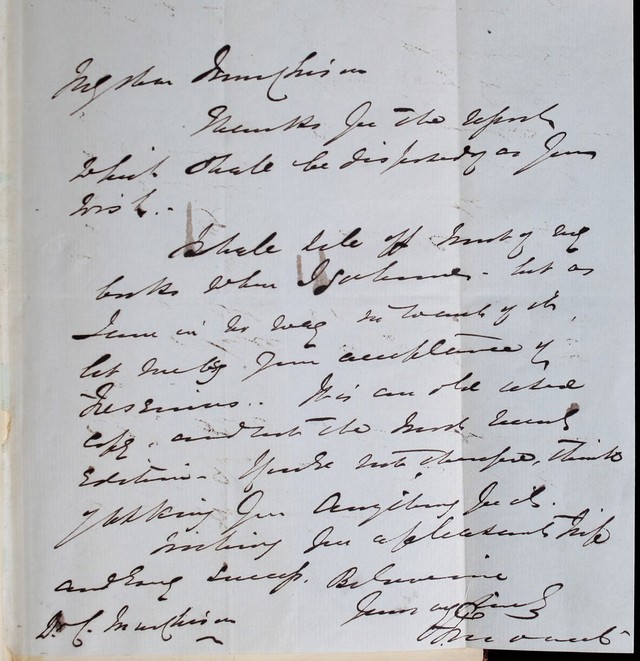 My dear Murchison
Thanks for the report
which shall be disposed of as you
wish.-
I shall sell off most of my
books when I go home - but as
I am in no way in want of it,
let me beg your acceptance of
Fresenius.. It is an old used
copy, and not the most recent
Edition - I could not therefore, think
of asking you anything for it.
Wishing you a pleasant trip
and Every success. Believe me
Yours very truly
Dr. C. Murchison